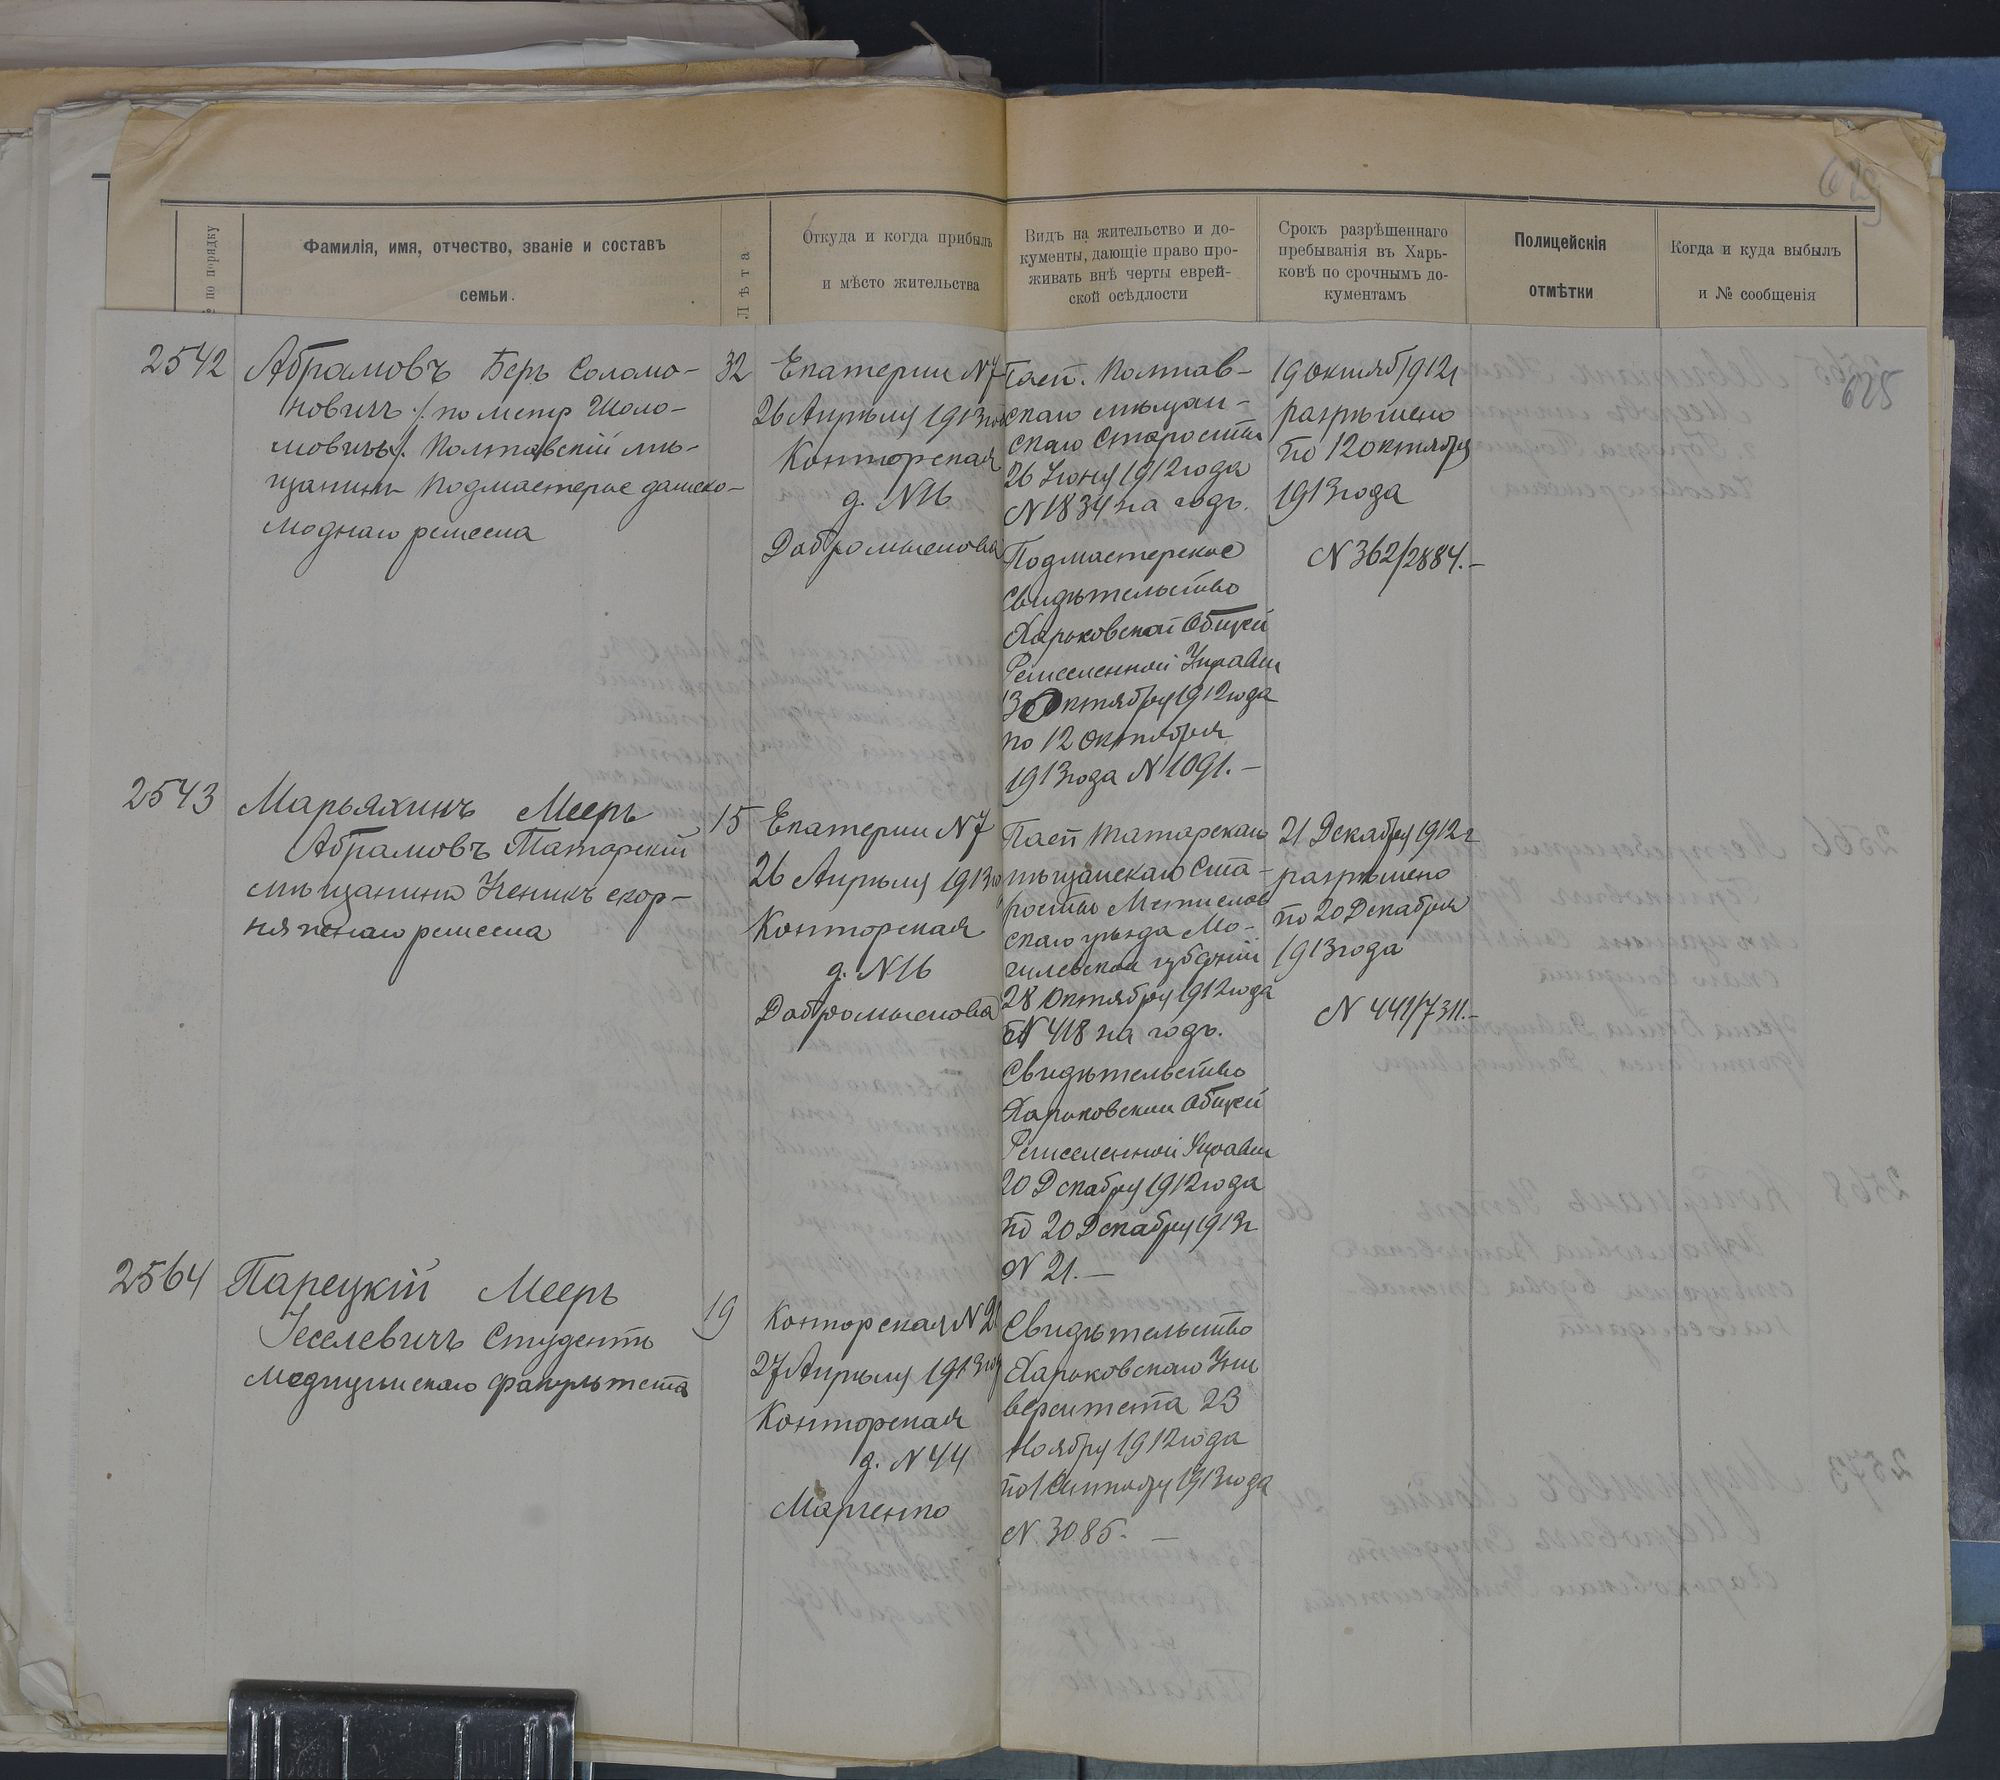 629
625
№ по порядку
Фамилія, имя, отчество, званіе и составъ
семьи.
Лѣта
Откуда и когда прибылъ
и мѣсто жительства
Видъ на жительство и до-
кументы, дающіе право про-
живать внѣ черты еврей-
ской осѣдлости
Срокъ разрѣшеннаго
пребыванія въ Харь-
ковѣ по срочнымъ до-
кументамъ
Полицейскія
отмѣтки
Когда и куда выбылъ
и № сообщенія
2542
Абрамовъ Беръ Соломо-
новичъ /. по метр Шоло-
мовичъ/. Полтавскій мѣ-
щанинъ Подмастерье дамско-
моднаго ремесла
32
Екатерин N 7
26 Апрѣля 1913 год
Конторская
д. N 16
Добромыслова
Пасп. Полтав-
скаго мѣщан-
скаго Старосты
26 Іюня 1912 года
N 1834 на годъ.
Подмастерское
Свидѣтельство
Харьковской Общей
Ремесленной Управы
13 Октября 1912 года
по 12 Октября
1913 года N 1091. –
19 Октяб 1912 г
разрѣшено
по 12 Октября
1913 года
N 362/2884. –
2543
Марьяхинъ Мееръ
Абрамовъ Татарскій
мѣщанинъ Ученикъ скор-
няжнаго ремесла
15
Екатерин N 7
26 Апрѣля 1913 го
Конторская
д. N 16
Добромыслова
Пасп Татарскаго
мѣщанскаго Ста-
росты Мстислав
скаго уѣзда Мо-
гилевской губерніи
28 Октября 1912 года
N 418 на годъ.
Свидѣтельство
Харьковской Общей
Ремесленной Управы
20 Декабря 1912 года
по 20 Декабря 1913 г
N 21. –
21 Декабря 1912 г
разрѣшено
по 20 Декабря
1913 года
N 441/7311. –
2564
Парецкій Мееръ
Іеселевичъ Студентъ
медицинскаго факультета
19
Конторская N 21
27 Апрѣля 1913 год
Конторская
д. N 44
Марченко
Свидѣтельство
Харьковскаго Уни
верситета 23
Ноября 1912 года
по 1 Сентября 1913 года
N. 3085. –